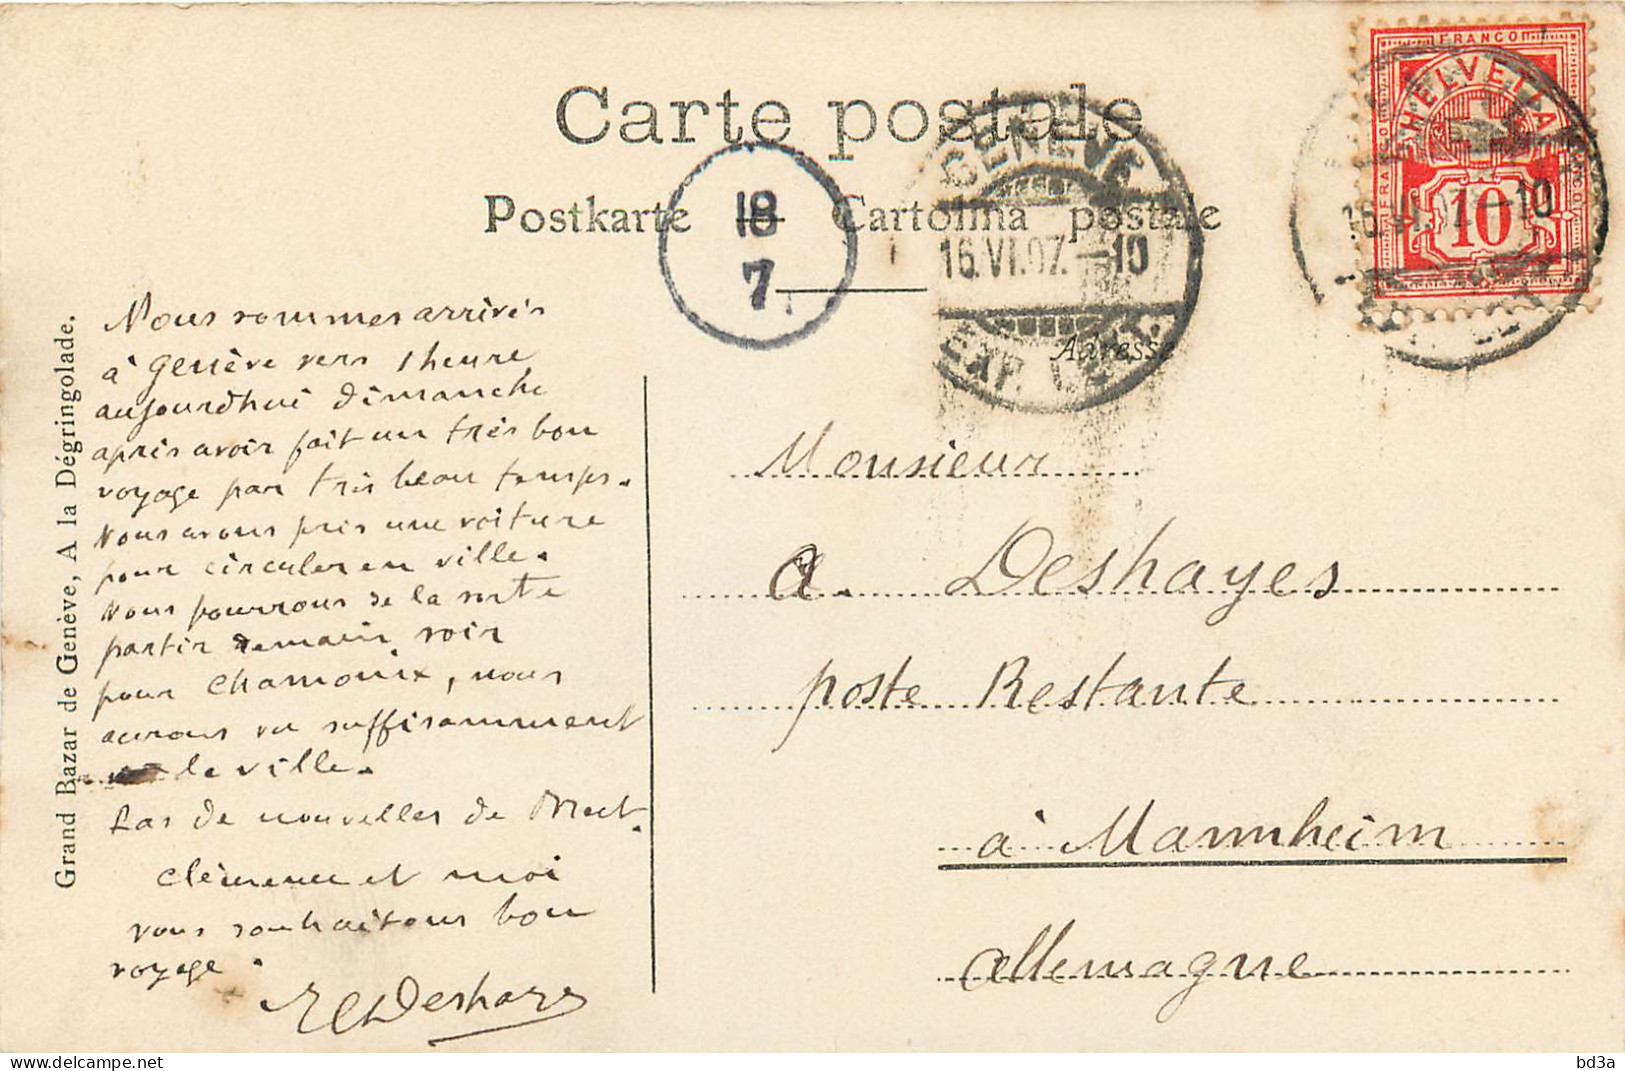 Carte postale
Postkarte — Cartolina postale
Adresse
FRANCO
HELVETIA
FRANCO
FRANCO
10
16.VI.07.—10
GENÈVE
16.VI.07.—10
EXP. LETT.
18
7
Grand Bazar de Genève, A la Dégringolade.
Nous sommes arrivés
à Genève vers 1 heure
aujourd'hui Dimanche
après avoir fait un très bon
voyage par très beau temps.
Nous avons pris une voiture
pour circuler en ville.
Nous pourrons de la sorte
partir demain soir
pour Chamonix, nous
aurons vu suffisamment
la ville.
Pas de nouvelles de
Clémence et moi
vous souhaitons bon
voyage.
Deshayes
Monsieur
A. Deshayes
poste Restante
à Mannheim
Allemagne
bd3a